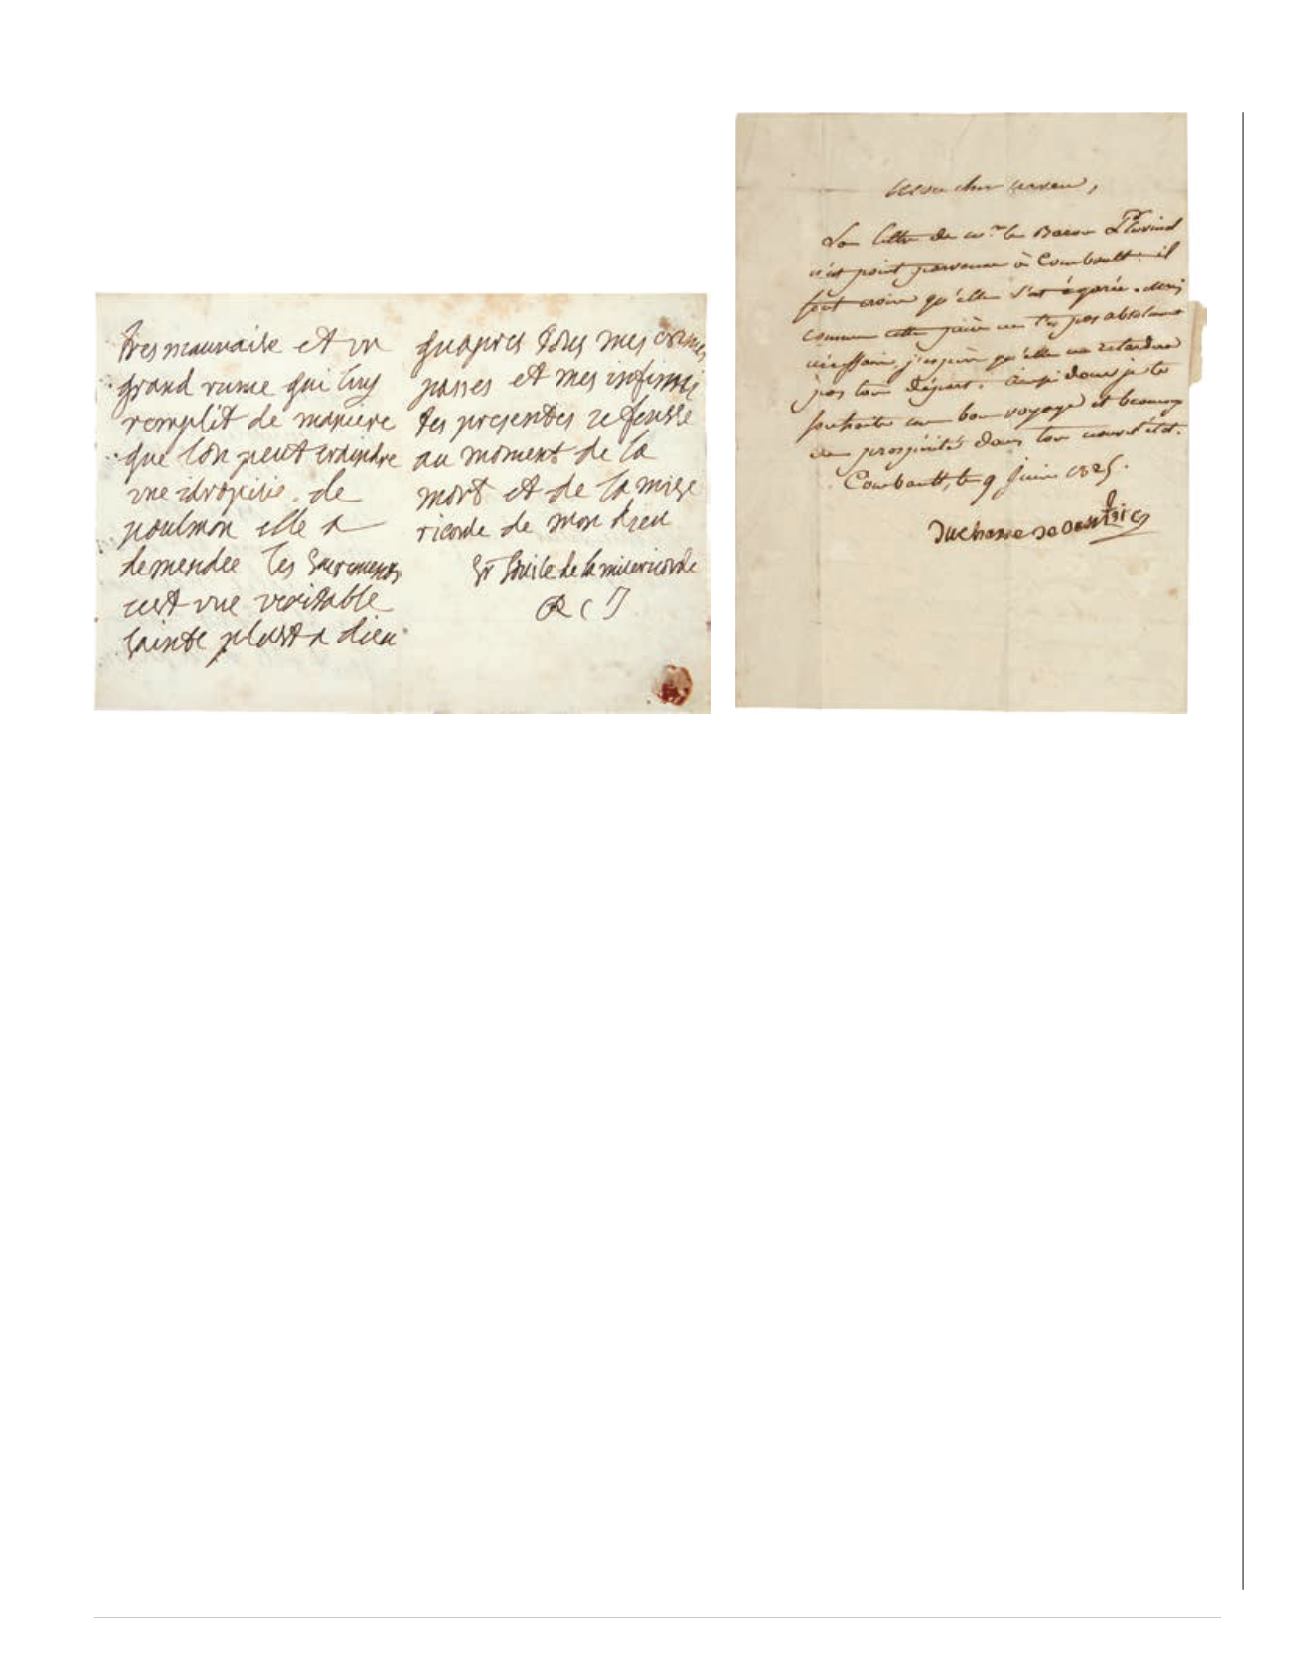 tres mauvaise et un
grand rume qui luy
remplit de maniere
que lon peut craindre
une idropisie de
poulmon elle a
demendee les sacrements
cest une veritable
sainte plust a dieu
quapres tous mes crimes
passes et mes infirmi
tes presentes je fusse
au moment de la
mort et de la mise
ricorde de mon dieu
Sr Louise de la misericorde
R C J
Mon cher neveu,
La lettre de Mr le Baron
n'est point parvenue à Combault. il
faut croire qu'elle s'est égarée. Mais
comme cette pièce ne t'es pas absolument
nécessaire j'espère qu'elle ne retardera
pas ton départ. ainsi donc je te
souhaite un bon voyage et beaucoup
de prospérité dans ton nouvel état.
Combault, le 9 Juin 1825.
Duchesse de